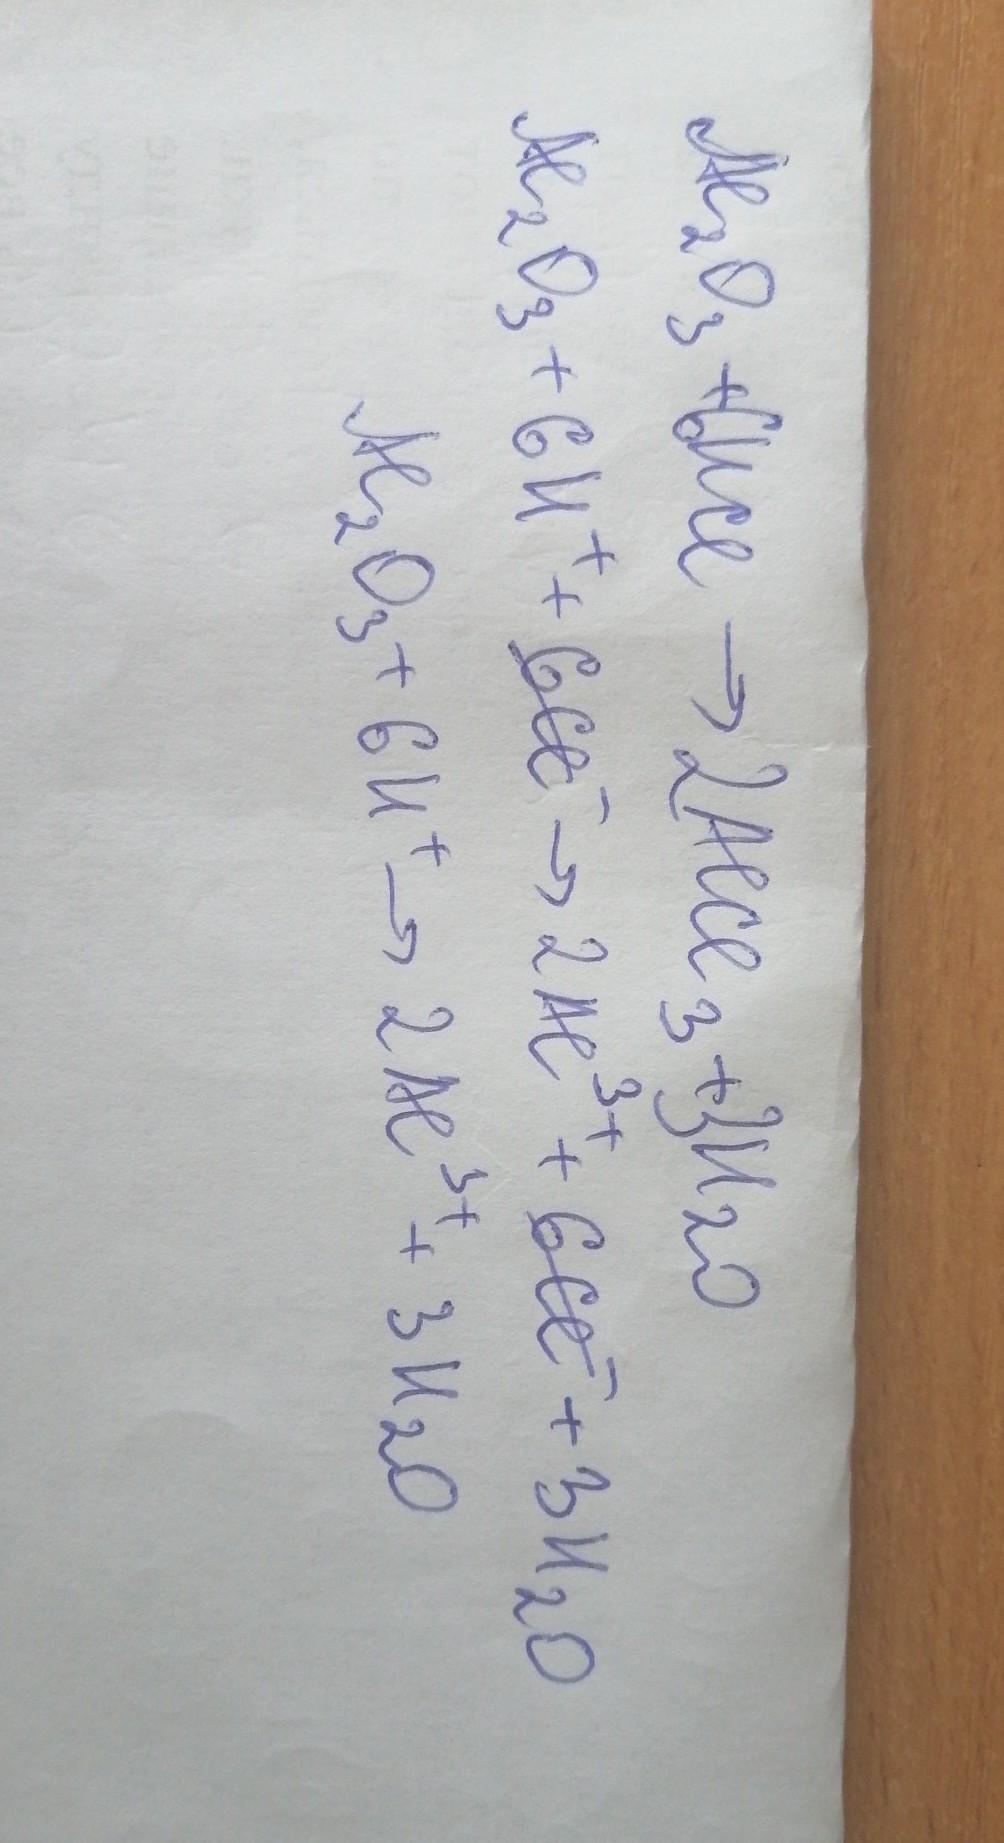 Al₂O₃ + 6HCl → 2AlCl₃ + 3H₂O
Al₂O₃ + 6H⁺ + 6Cl⁻ → 2Al³⁺ + 6Cl⁻ + 3H₂O
Al₂O₃ + 6H⁺ → 2Al³⁺ + 3H₂O